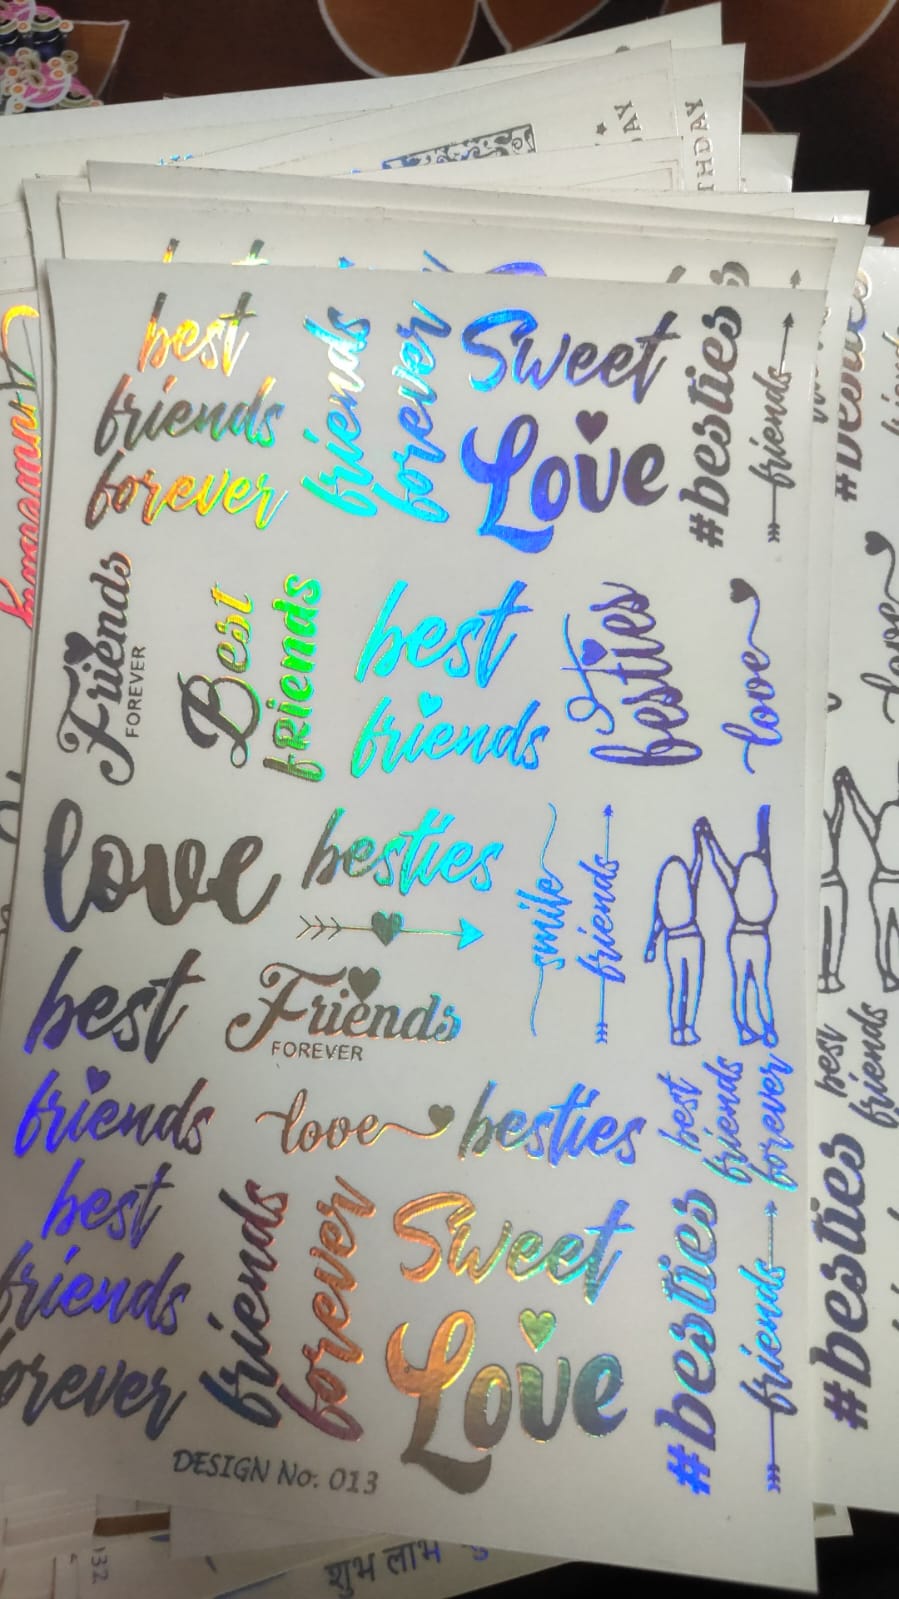 best
friends
forever
friends
forever
Sweet
Love
#besties
friends
Friends
FOREVER
Best
FRiends
best
friends
besties
love
love
besties
smile
friends
best
friends
Friends
FOREVER
love
besties
best
friends
forever
best
friends
forever
friends
forever
Sweet
Love
#besties
friends
DESIGN No. 013
love
best
friends
#besties
शुभ लाभ